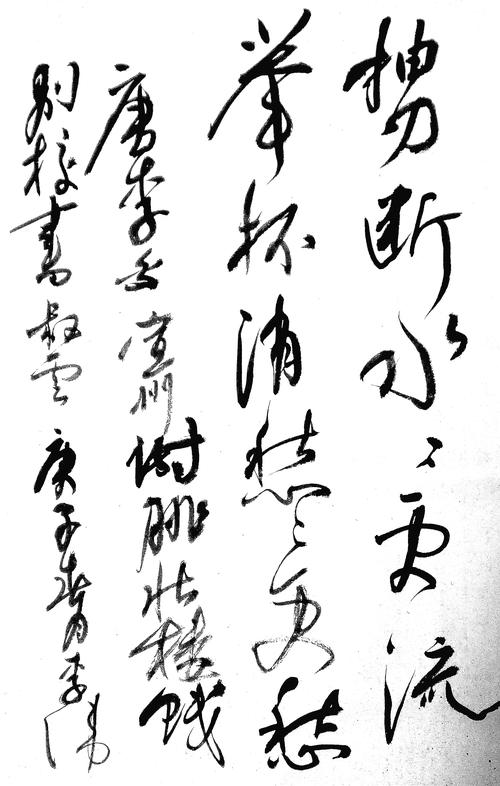 抽刀断水々更流
举杯消愁々更愁
唐李白宣州谢朓北楼饯
别校書叔云 庚子春月李